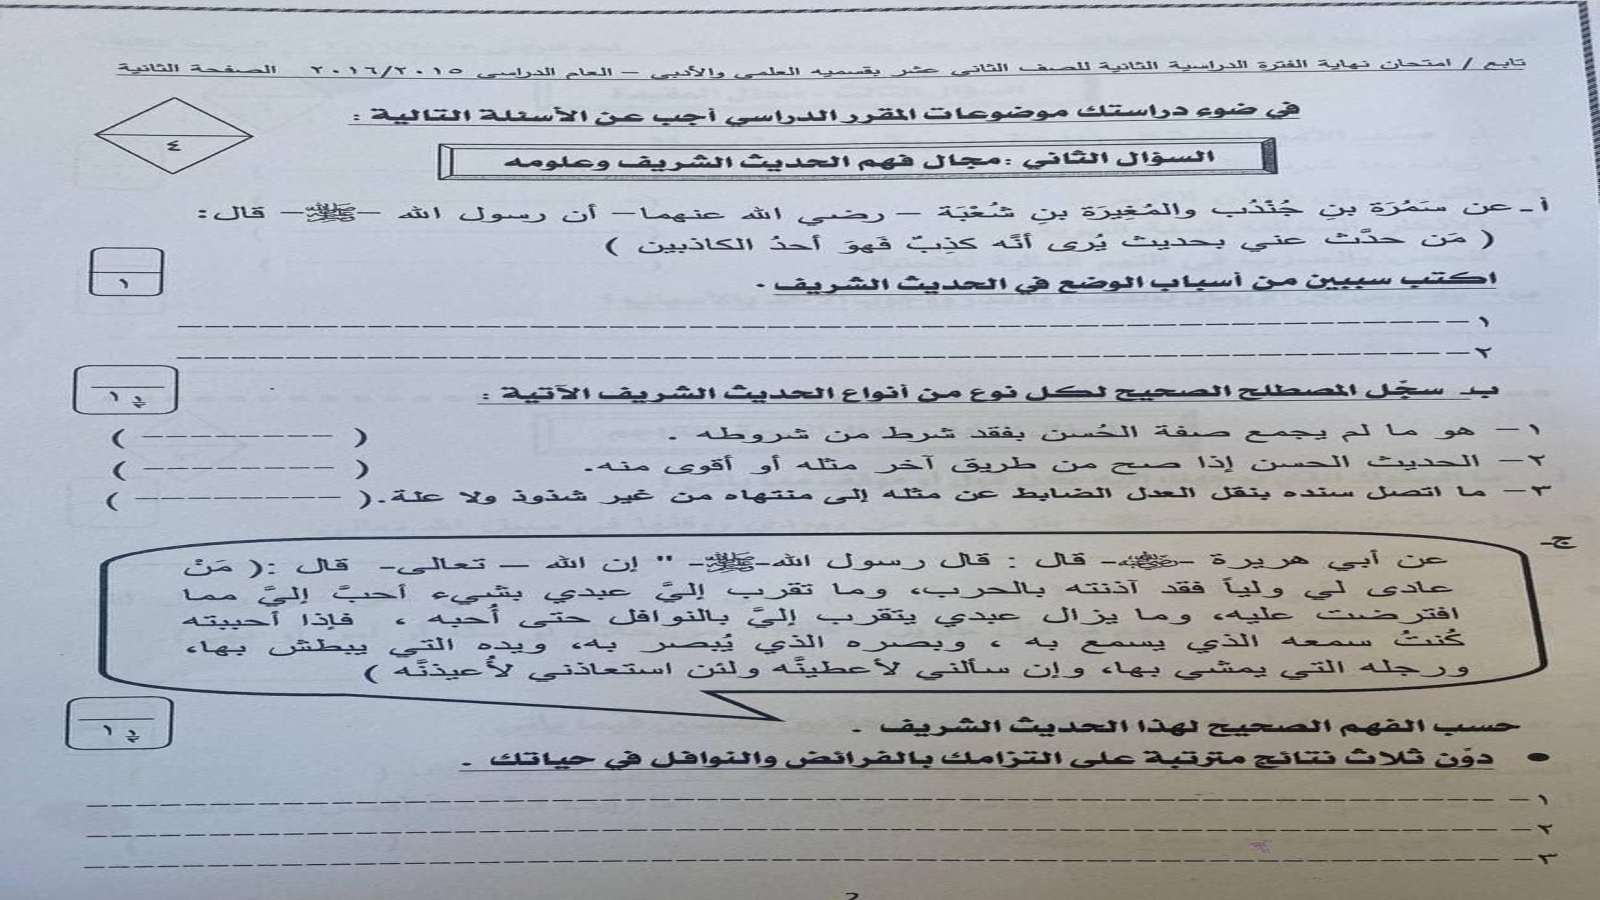 تابع / امتحان نهاية الفترة الدراسية الثانية للصف الثاني عشر بقسميه العلمي والأدبي – العام الدراسي ٢٠١٦/٢٠١٥ الصفحة الثانية
في ضوء دراستك موضوعات المقرر الدراسي أجب عن الأسئلة التالية :
٤
السؤال الثاني : مجال فهم الحديث الشريف وعلومه
أ- عن سَمُرَة بنِ جُنْدُب والمُغِيرَة بنِ شُعْبَة – رضي الله عنهما– أن رسول الله –ﷺ– قال:
( مَن حدَّث عني بحديث يُرى أنَّه كذِبٌ فَهوَ أحدُ الكاذبين )
اكتب سببين من أسباب الوضع في الحديث الشريف .
١
١ –
٢ –
ب- سجّل المصطلح الصحيح لكل نوع من أنواع الحديث الشريف الآتية :
١ ½
١– هو ما لم يجمع صفة الحُسن بفقد شرط من شروطه . ( – – – – – – – – )
٢– الحديث الحسن إذا صح من طريق آخر مثله أو أقوى منه. ( – – – – – – – – )
٣– ما اتصل سنده بنقل العدل الضابط عن مثله إلى منتهاه من غير شذوذ ولا علة. ( – – – – – – – – – )
ج-
عن أبي هريرة – – قال : قال رسول الله-ﷺ- " إن الله – تعالى- قال :( مَنْ
عادى لي ولياً فقد آذنته بالحرب، وما تقرب إليَّ عبدي بشيء أحبَّ إليَّ مما
افترضت عليه، وما يزال عبدي يتقرب إليَّ بالنوافل حتى أُحبه ، فإذا أحببته
كُنتُ سمعه الذي يسمع به ، وبصره الذي يُبصر به، ويده التي يبطش بها،
ورجله التي يمشي بها، وإن سألني لأعطينَّه ولئن استعاذني لأُعيذنَّه )
حسب الفهم الصحيح لهذا الحديث الشريف .
١ ½
• دوّن ثلاث نتائج مترتبة على التزامك بالفرائض والنوافل في حياتك .
١ –
٢ –
٣ –
2